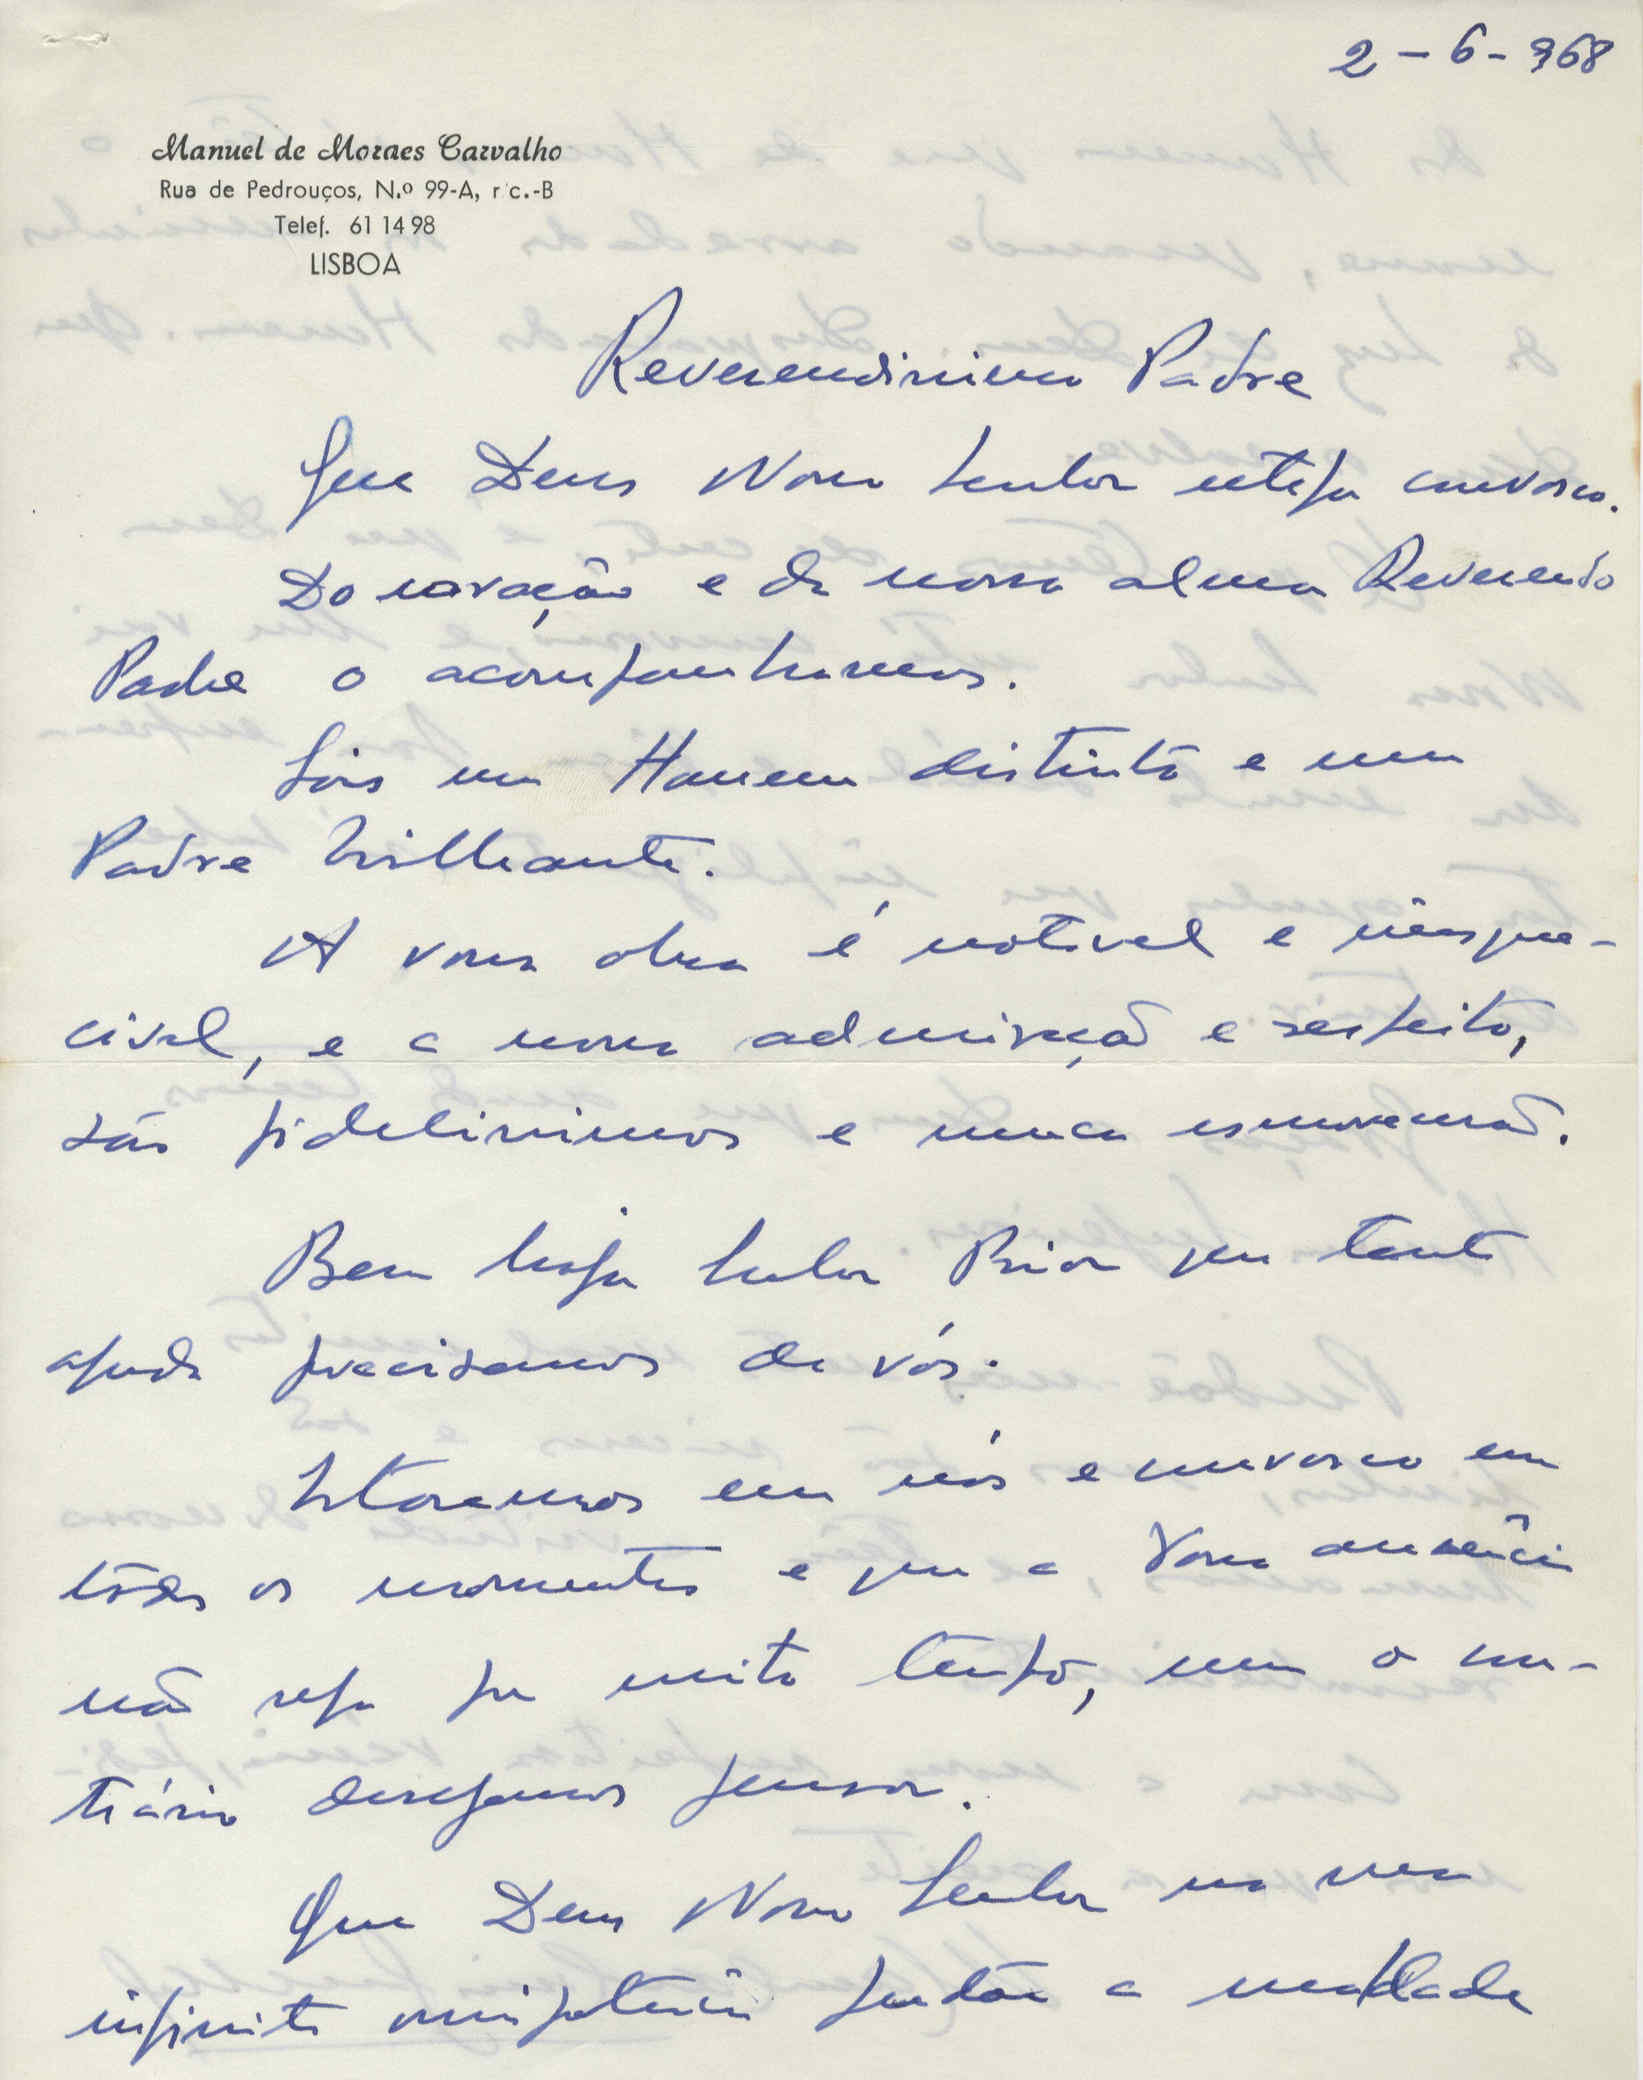 2-6-968
Manuel de Moraes Carvalho
Rua de Pedrouços, N.º 99-A, r/c.-B
Telef. 61 14 98
LISBOA
Reverendissimo Padre
Que Deus Nosso Senhor esteja convosco.
Do coração e da nossa alma Reverendo
Padre o acompanhamos.
Sois um Homem distinto e um
Padre brilhante.
A vossa obra é notavel e inesque-
civel, e a nossa admiração e respeito,
são fidelissimos e nunca esmorecerão.
Bem haja Senhor Prior que tanta
ajuda precisamos de vós.
Estaremos em nós e convosco em
todos os momentos e que a Vossa ausência
não seja por muito tempo, nem o con-
trário desejamos pensar.
Que Deus Nosso Senhor na sua
infinita omnipotência perdôe a maldade